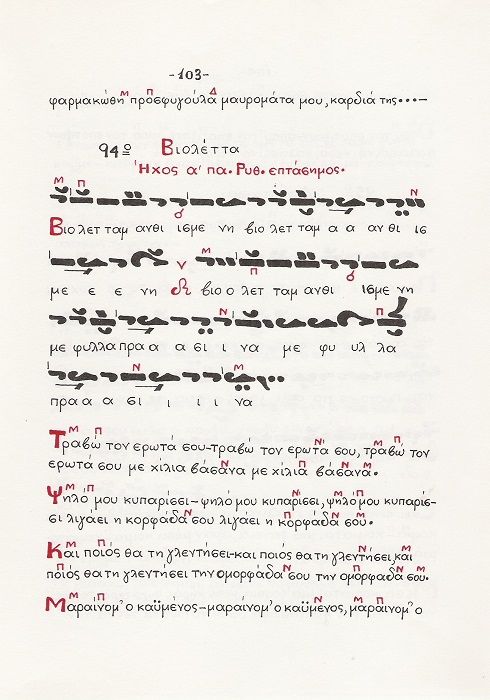 -103-
φαρμακώθη προσφυγούλα μαυρομάτα μου, καρδιά της...-
94ο Βιολέττα
Ήχος α' πα. Ρυθ. επτάσημος.
Βιο λετ ταμ ανθι ισμε νη βιο λετ ταμ α α ανθι ισ
με ε ε νη βιο ο λετ ταμ ανθι ισμε νη
με φυλλα πρα α α σι ι να με φυ υλ λα
πρα α α σι ι ι ι να
Τραβώ τον ερωτά σου-τραβώ τον ερωτά σου, τραβώ τον
ερωτά σου με χίλια βάσανα με χίλια βάσανα.
Ψηλό μου κυπαρίσσι-ψηλό μου κυπαρίσσι, ψηλό μου κυπαρίσ-
σι λιγάει η κορφάδα σου λιγάει η κορφάδα σου.
Και ποιός θα τη γλεντήσει-και ποιός θα τη γλεντήσει και
ποιός θα τη γλεντήσει την ομορφάδα σου την ομορφάδα σου.
Μαραίνομ' ο καϋμένος-μαραίνομ' ο καϋμένος, μαραίνομ' ο